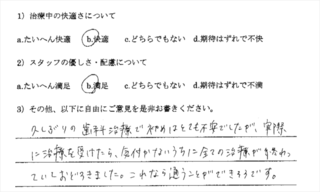 1）治療中の快適さについて
a.たいへん快適 b.快適 c.どちらでもない d.期待はずれで不快
2）スタッフの優しさ・配慮について
a.たいへん満足 b.満足 c.どちらでもない d.期待はずれで不満
3）その他、以下に自由にご意見を是非お書きください。
久しぶりの歯科治療で初めはとても不安でしたが、実際
に治療を受けたら、気付かないうちに全ての治療が終わっ
ていしおどろきました。これなら通うことができそうです。